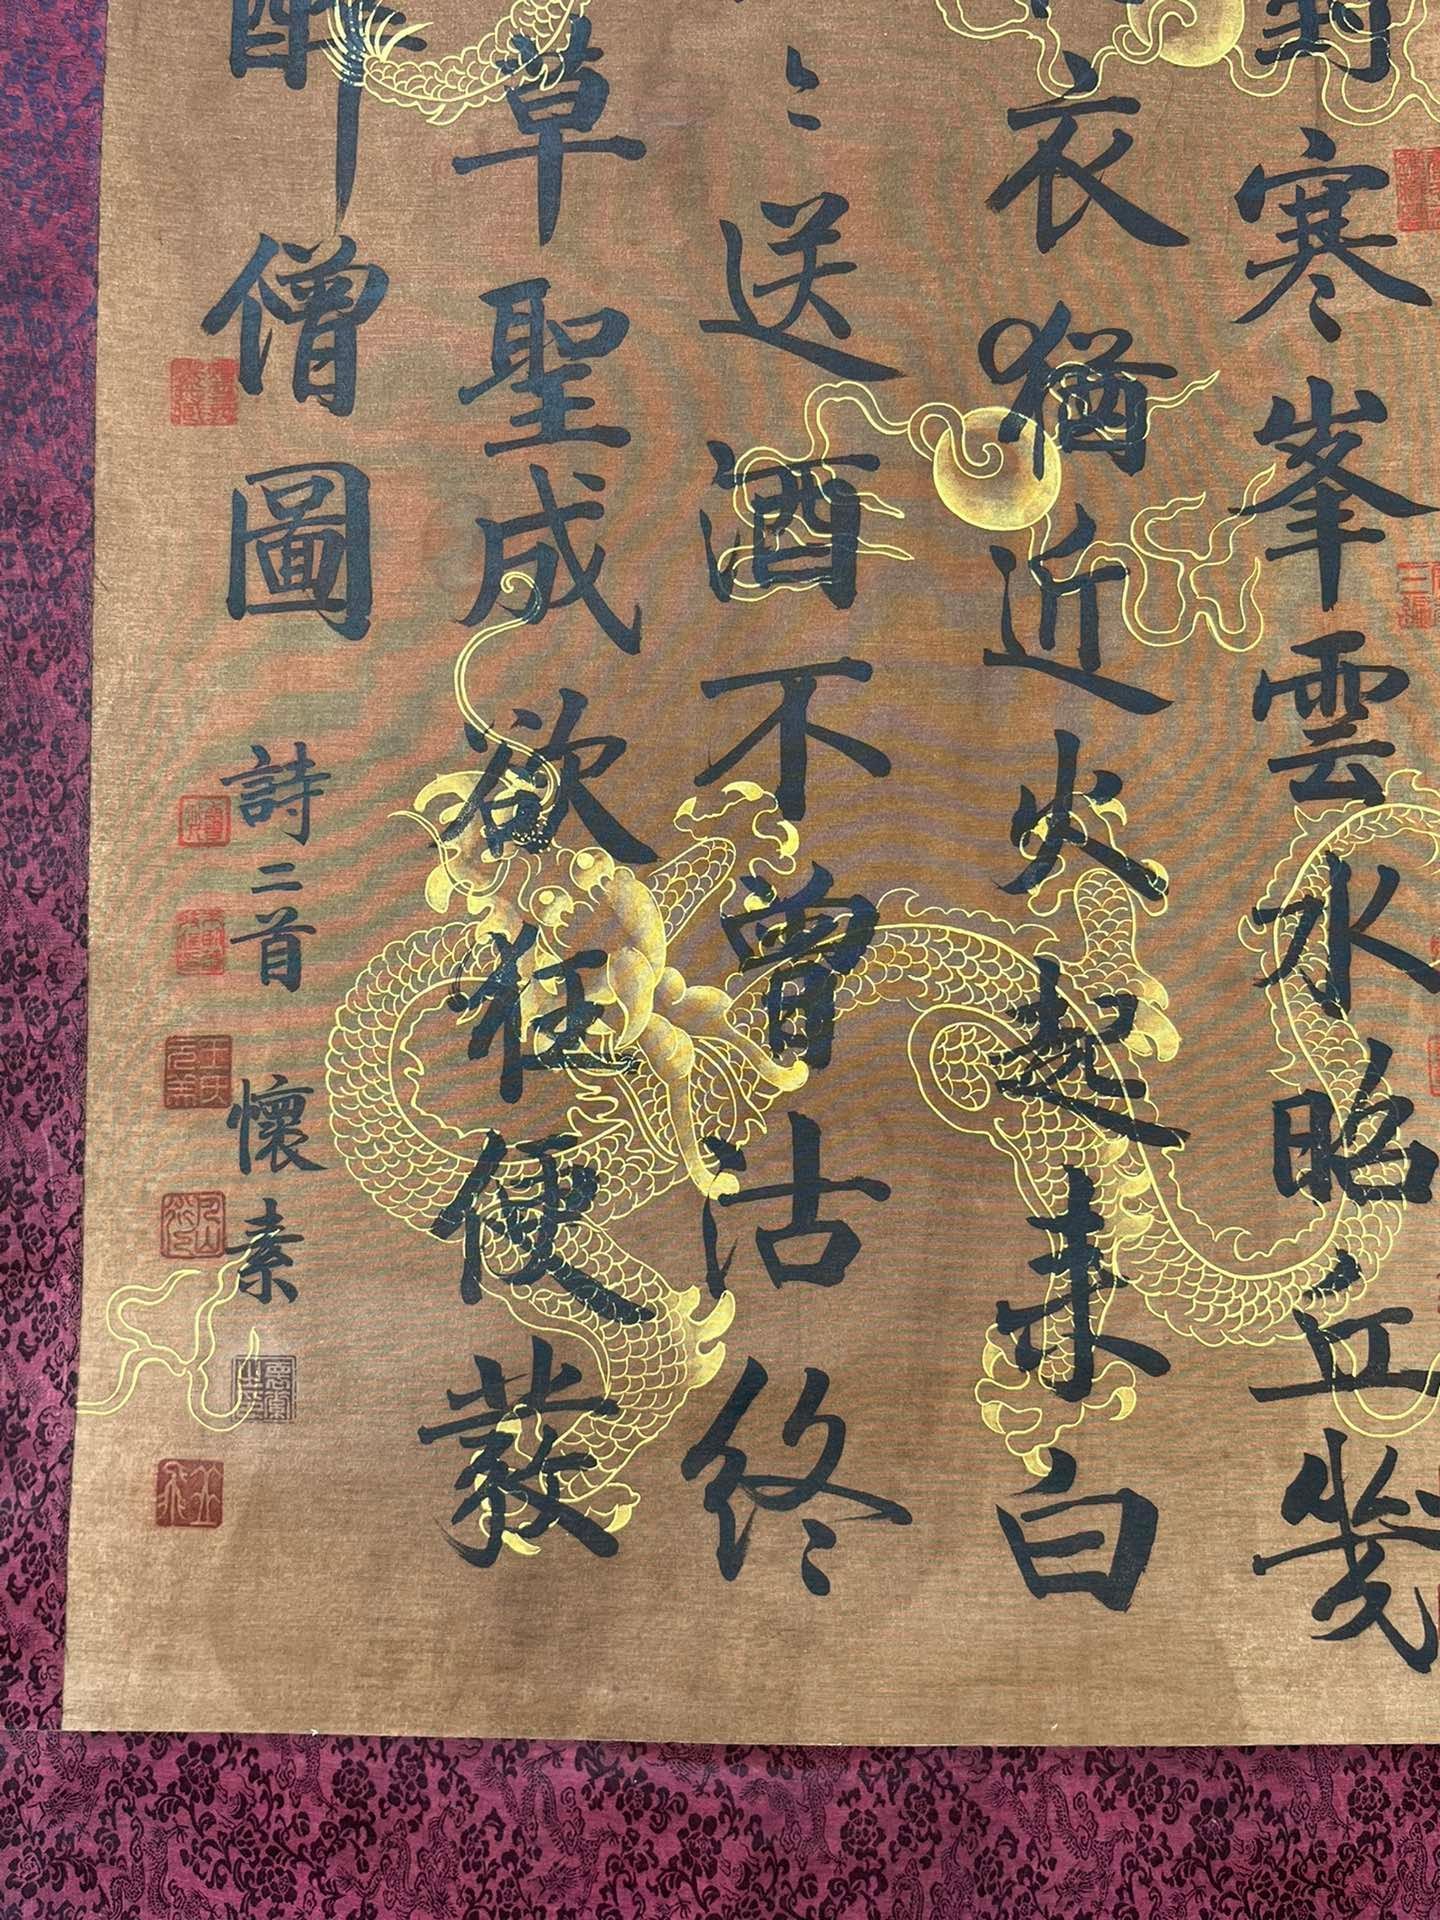 對寒峯雲水昭丘幾
衣猶近火起來白
〻送酒不曾沽終
草聖成欲狂便發
醉僧圖 詩二首 懷素